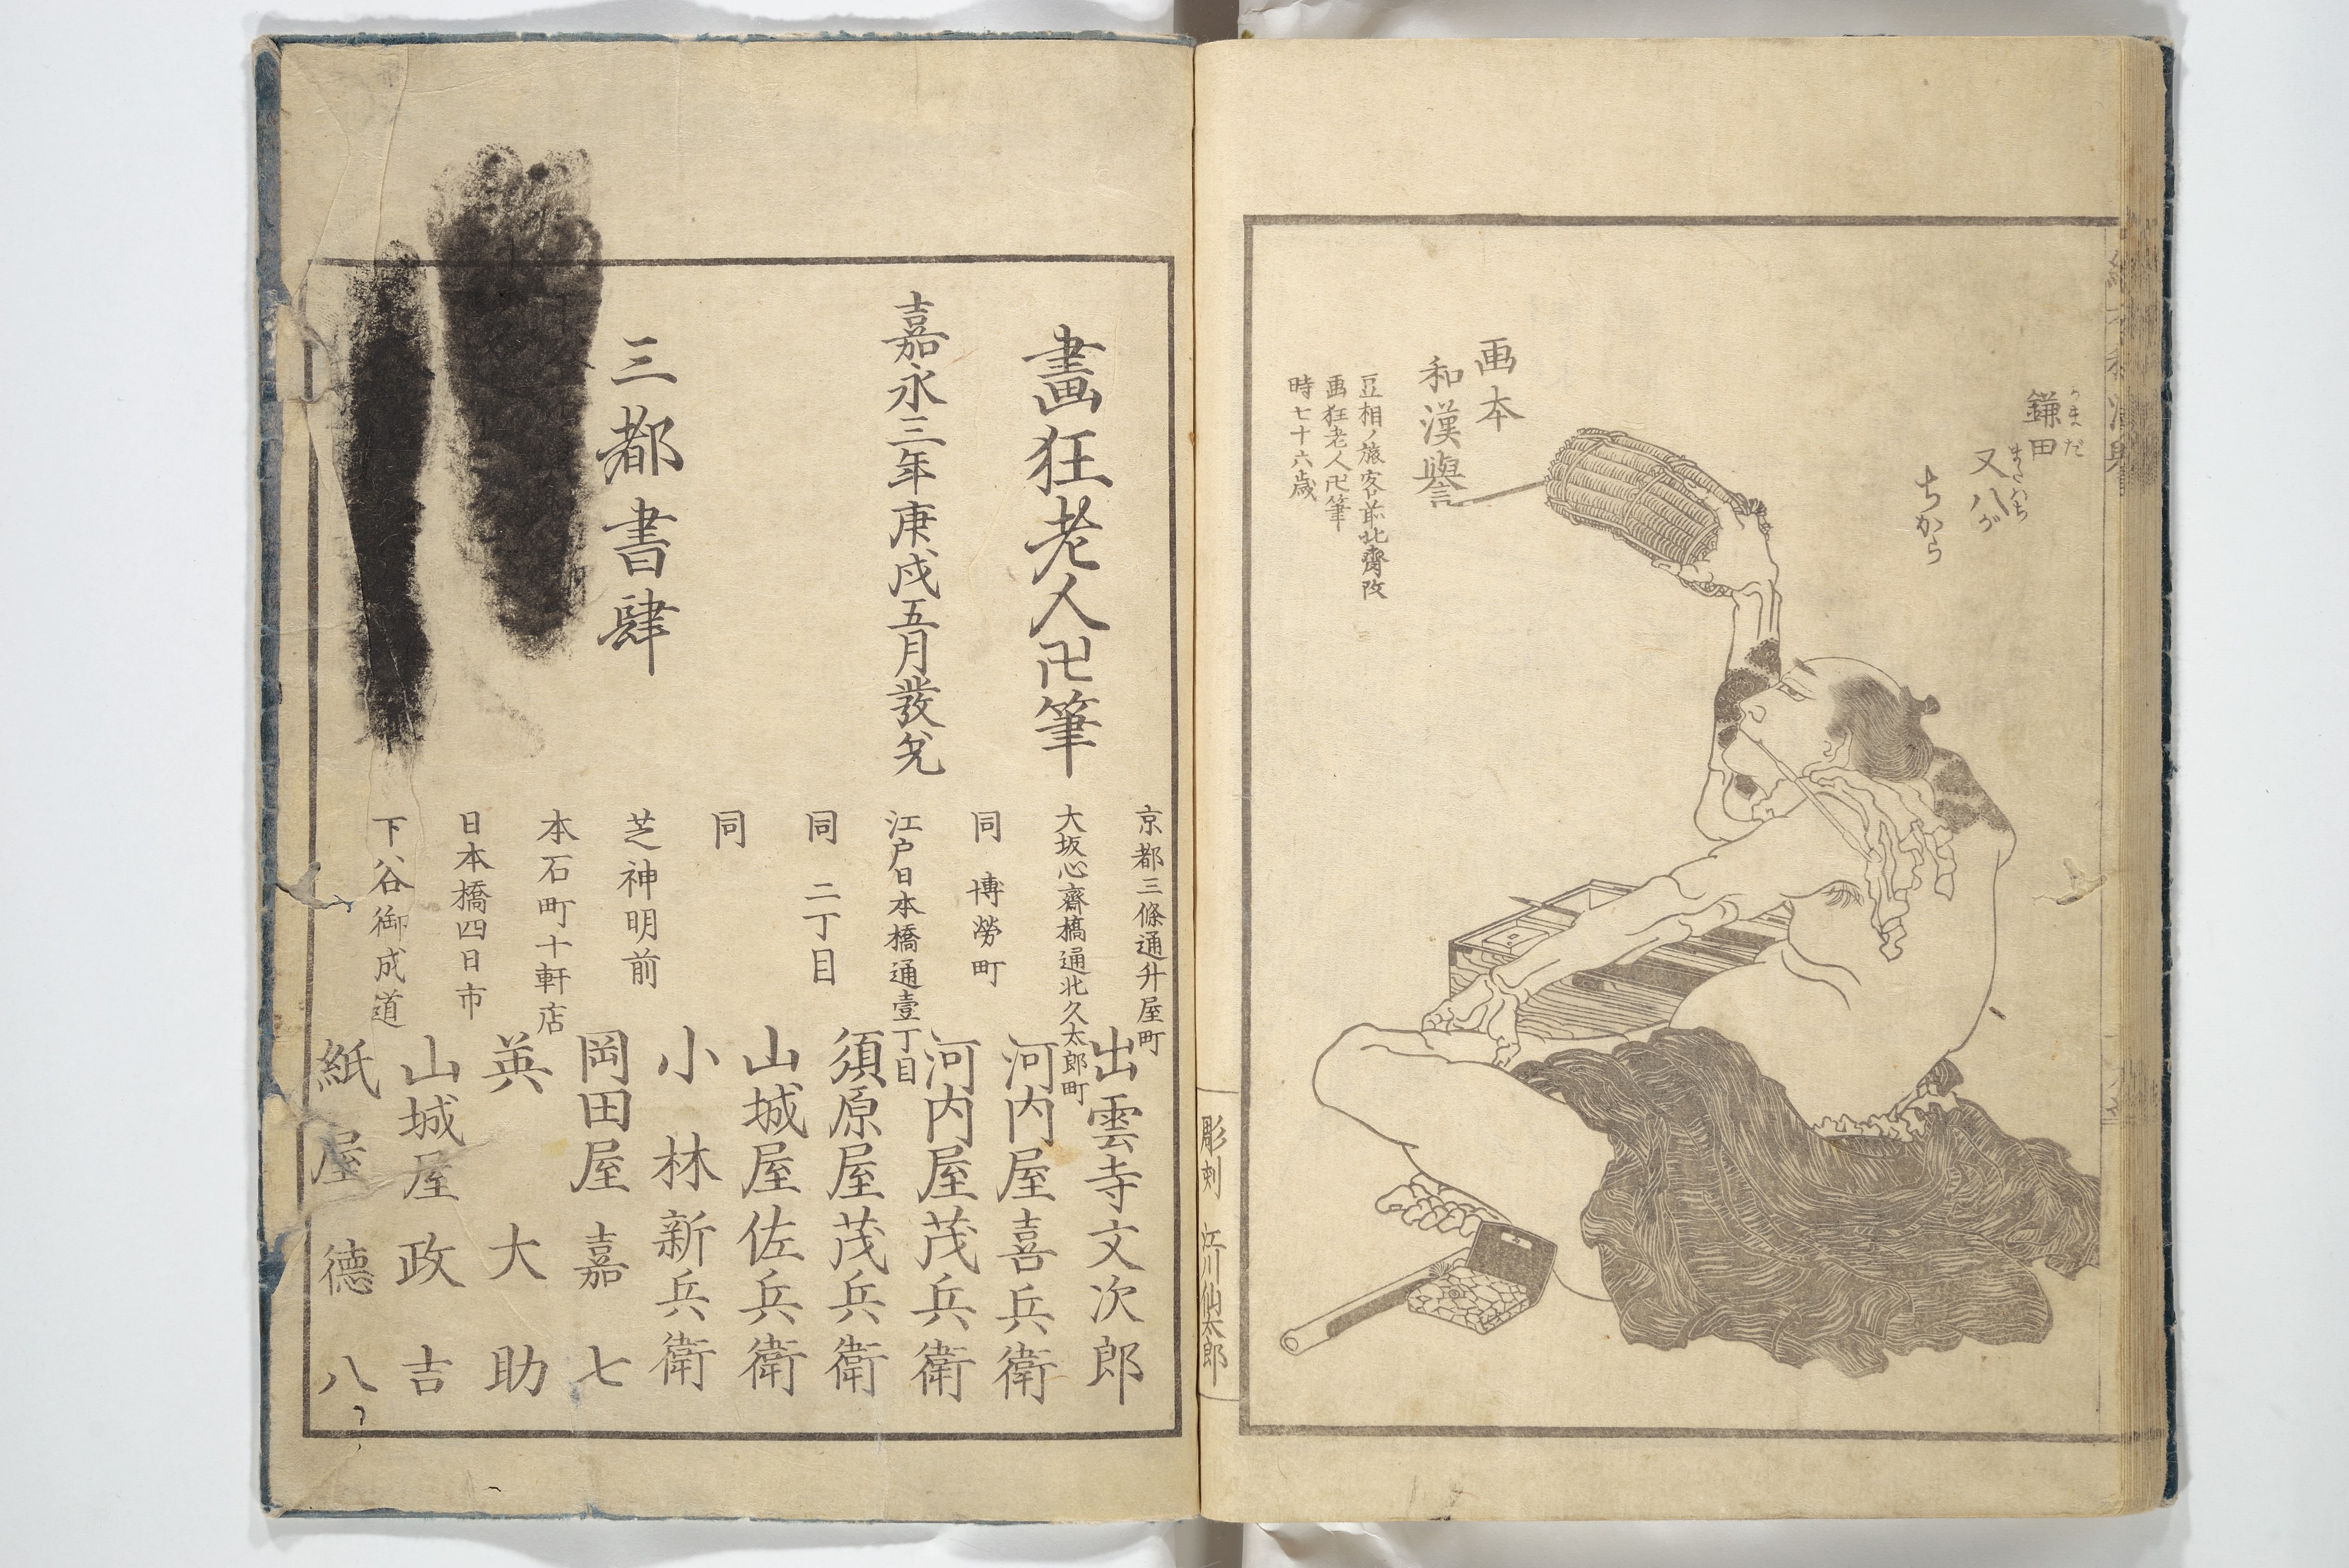 鎌田
かまだ
又八が
またはち
ちから
画本
和漢譽
豆相ノ旅客前北齋改
画狂老人卍筆
時七十六歳
彫刻 江川仙太郎
畫狂老人卍筆
嘉永三年庚戌五月發兌
三都書肆
京都三條通升屋町 出雲寺文次郎
大坂心齋橋通北久太郎町 河内屋喜兵衛
同 博勞町 河内屋茂兵衛
江戸日本橋通壹丁目 須原屋茂兵衛
同 二丁目 山城屋佐兵衛
同 小林新兵衛
芝神明前 岡田屋嘉七
本石町十軒店 英大助
日本橋四日市 山城屋政吉
下谷御成道 紙屋德八